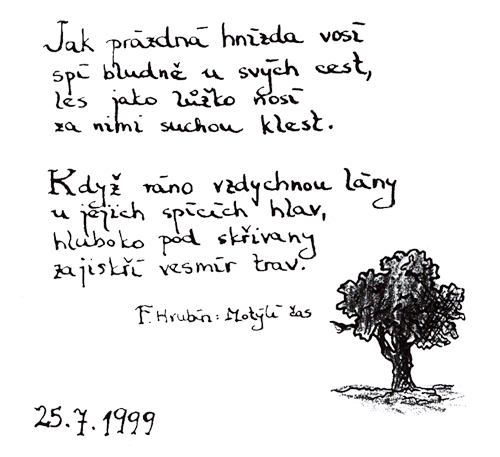 Jak prázdná hnízda vosí
spí bludně u svých cest,
les jako lůžko nosí
za nimi suchou klest.
Když ráno vzdychnou lány
u jejich spících hlav,
hluboko pod skřivany
zajiskří vesmír trav.
F. Hrubín: Motýlí čas
25.7.1999